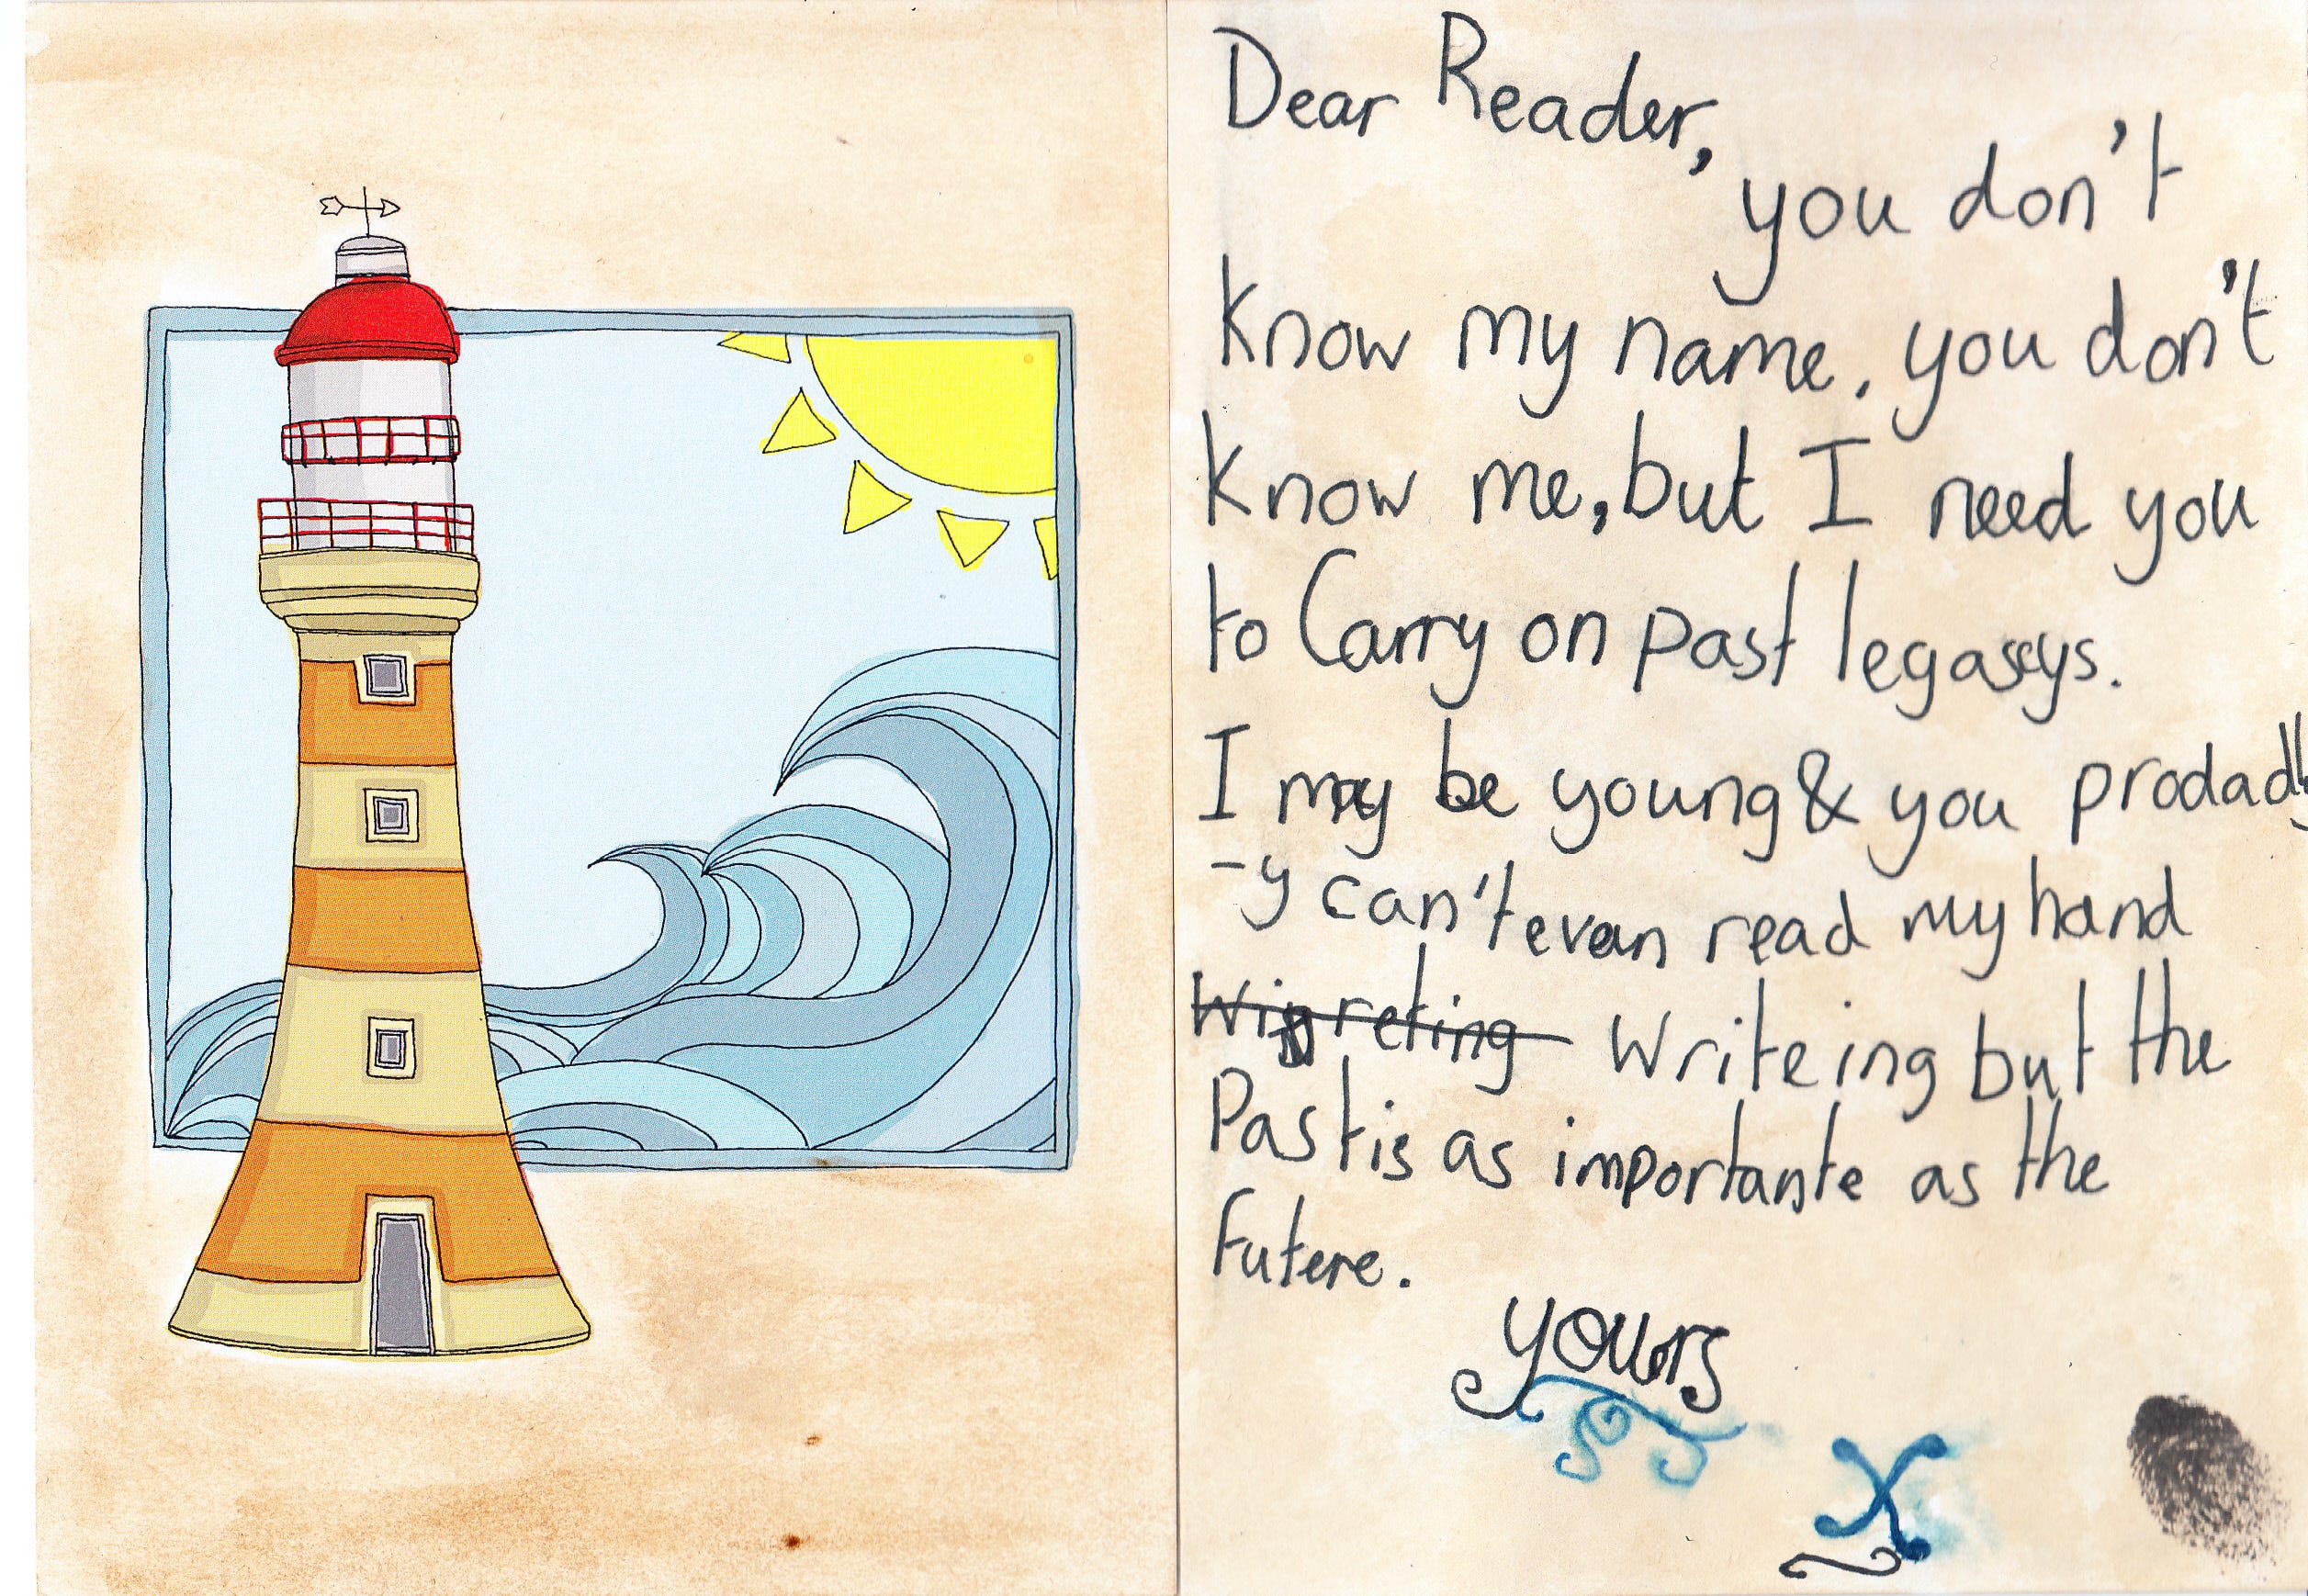 Dear Reader,
you don't
know my name, you don't
know me, but I need you
to Carry on past legaseys.
I may be young & you prodadly
-y can't evean read my hand
Wigreting Writeing but the
Past is as importante as the
Futere.
yours
X